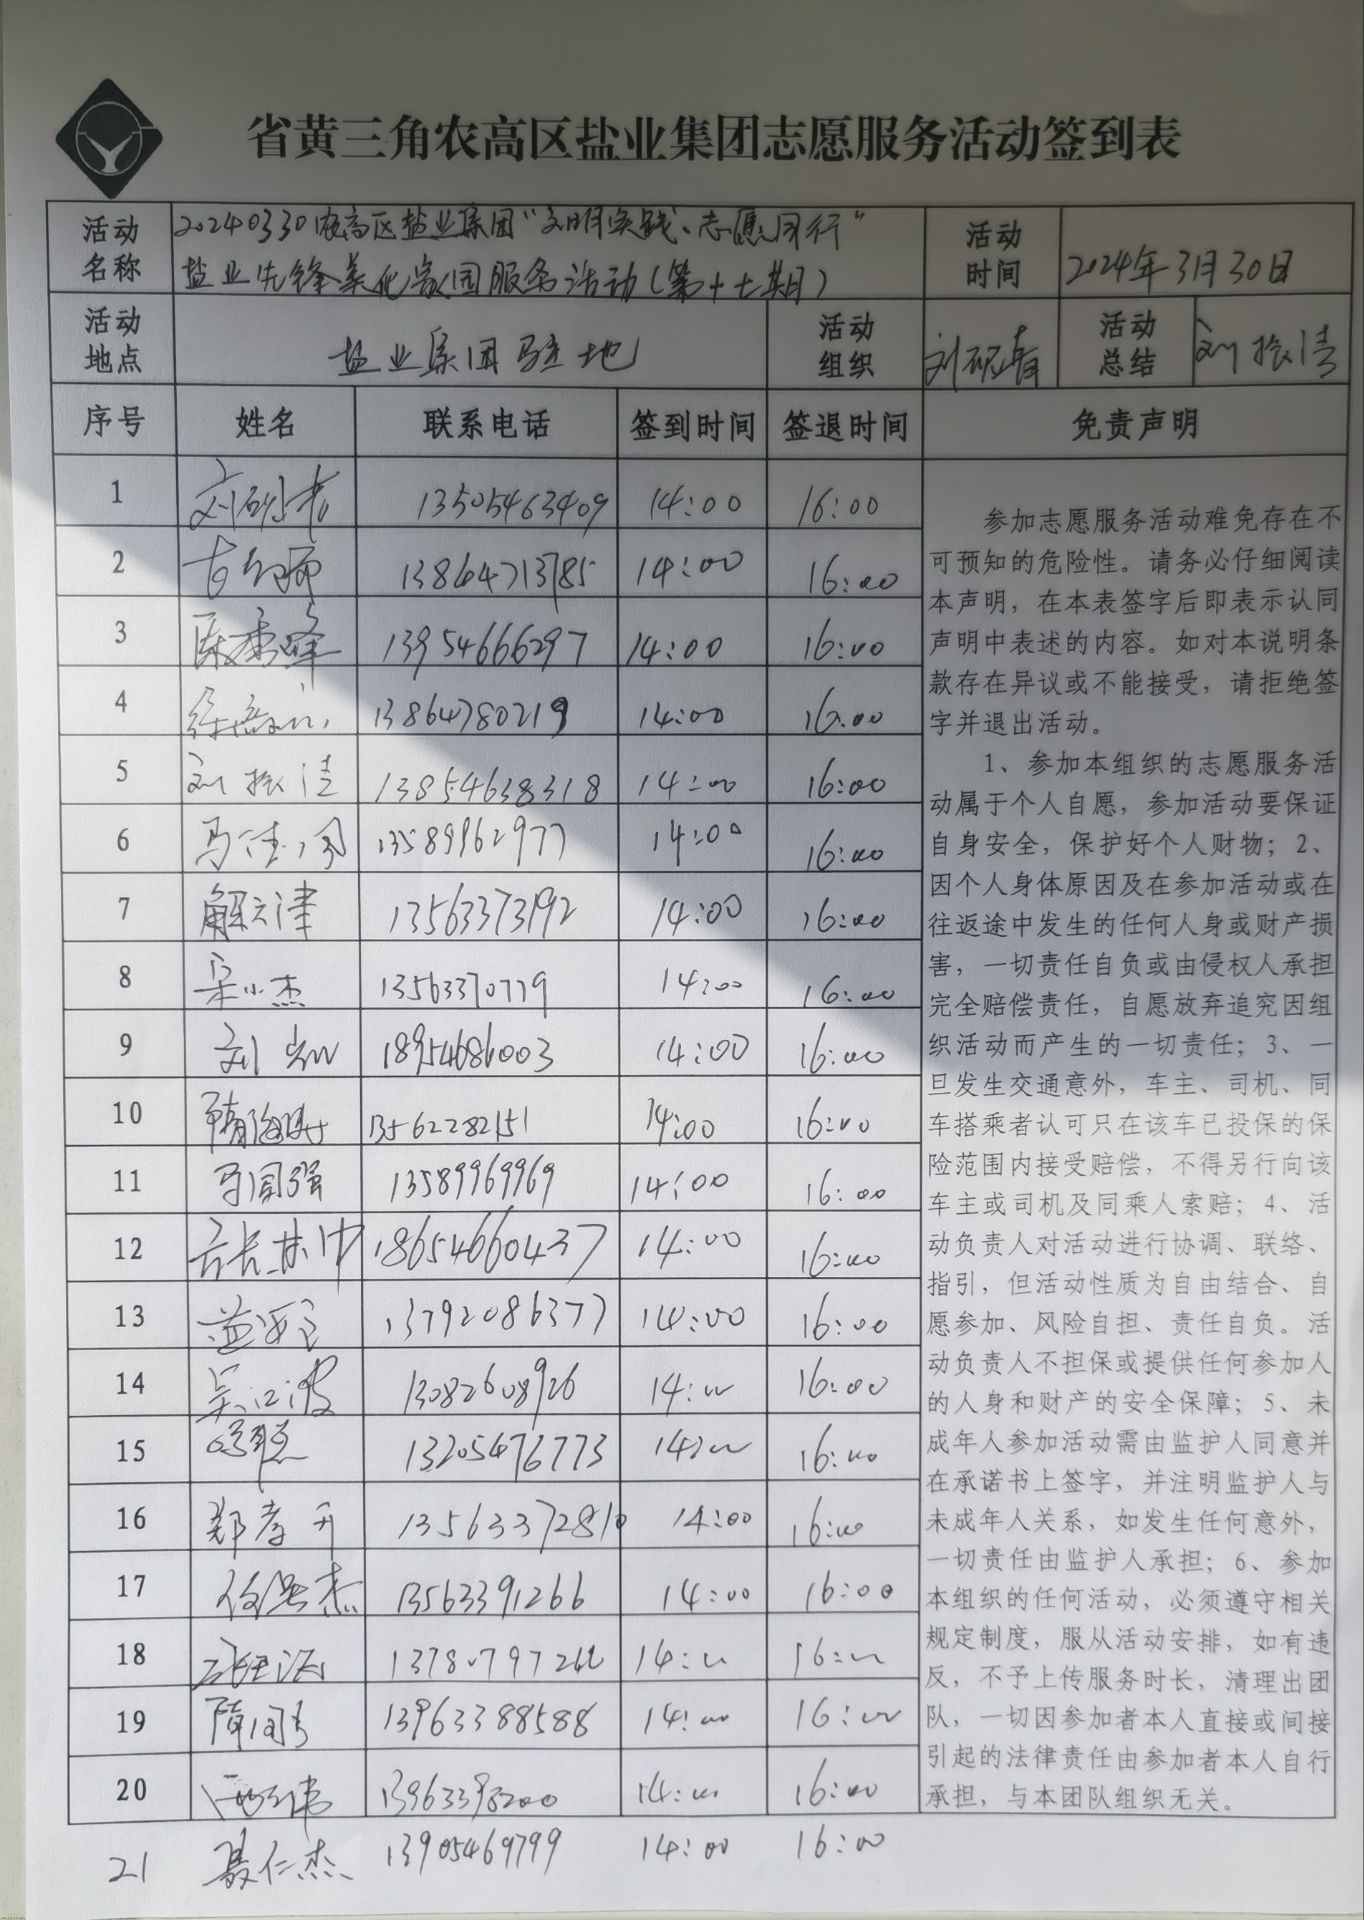 省黄三角农高区盐业集团志愿服务活动签到表
活动名称 20240330农高区盐业集团“文明实践、志愿同行”
盐业先锋美化家园服务活动(第十七期)
活动时间 2024年3月30日
活动地点 盐业集团驻地 活动组织 刘砚春 活动总结 刘振清
序号 姓名 联系电话 签到时间 签退时间 免责声明
1 13505463409 14:00 16:00
2 13864713785 14:00 16:00
3 13954666297 14:00 16:00
4 13864780219 14:00 16:00
5 刘振清 13854638318 14:00 16:00
6 13589962977 14:00 16:00
7 解云津 13563373192 14:00 16:00
8 宋小杰 13563370779 14:00 16:00
9 18954686003 14:00 16:00
10 13562282151 14:00 16:00
11 马国强 13589969969 14:00 16:00
12 18654660437 14:00 16:00
13 13792086377 14:00 16:00
14 吴江波 13082608926 14:00 16:00
15 13205476773 14:00 16:00
16 郑孝升 13563372810 14:00 16:00
17 任洪杰 13563391266 14:00 16:00
18 14:00 16:00
19 13963388588 14:00 16:00
20 14:00 16:00
21 聂仁杰 13905469799 14:00 16:00
参加志愿服务活动难免存在不
可预知的危险性。请务必仔细阅读
本声明，在本表签字后即表示认同
声明中表述的内容。如对本说明条
款存在异议或不能接受，请拒绝签
字并退出活动。
1、参加本组织的志愿服务活
动属于个人自愿，参加活动要保证
自身安全，保护好个人财物；2、
因个人身体原因及在参加活动或在
往返途中发生的任何人身或财产损
害，一切责任自负或由侵权人承担
完全赔偿责任，自愿放弃追究因组
织活动而产生的一切责任；3、一
旦发生交通意外，车主、司机、同
车搭乘者认可只在该车已投保的保
险范围内接受赔偿，不得另行向该
车主或司机及同乘人索赔；4、活
动负责人对活动进行协调、联络、
指引，但活动性质为自由结合、自
愿参加、风险自担、责任自负。活
动负责人不担保或提供任何参加人
的人身和财产的安全保障；5、未
成年人参加活动需由监护人同意并
在承诺书上签字，并注明监护人与
未成年人关系，如发生任何意外，
一切责任由监护人承担；6、参加
本组织的任何活动，必须遵守相关
规定制度，服从活动安排，如有违
反，不予上传服务时长，清理出团
队，一切因参加者本人直接或间接
引起的法律责任由参加者本人自行
承担，与本团队组织无关。